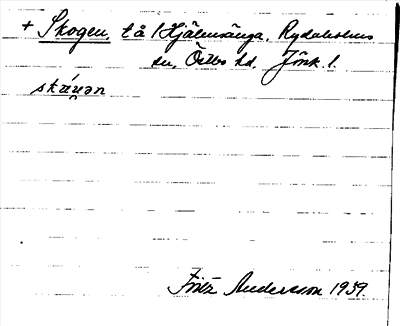 + Skogen, t å 1 Hjälmsänga, Rydaholms
sn, Östbo hd. Jönk. l.
Fritz Andersson 1939